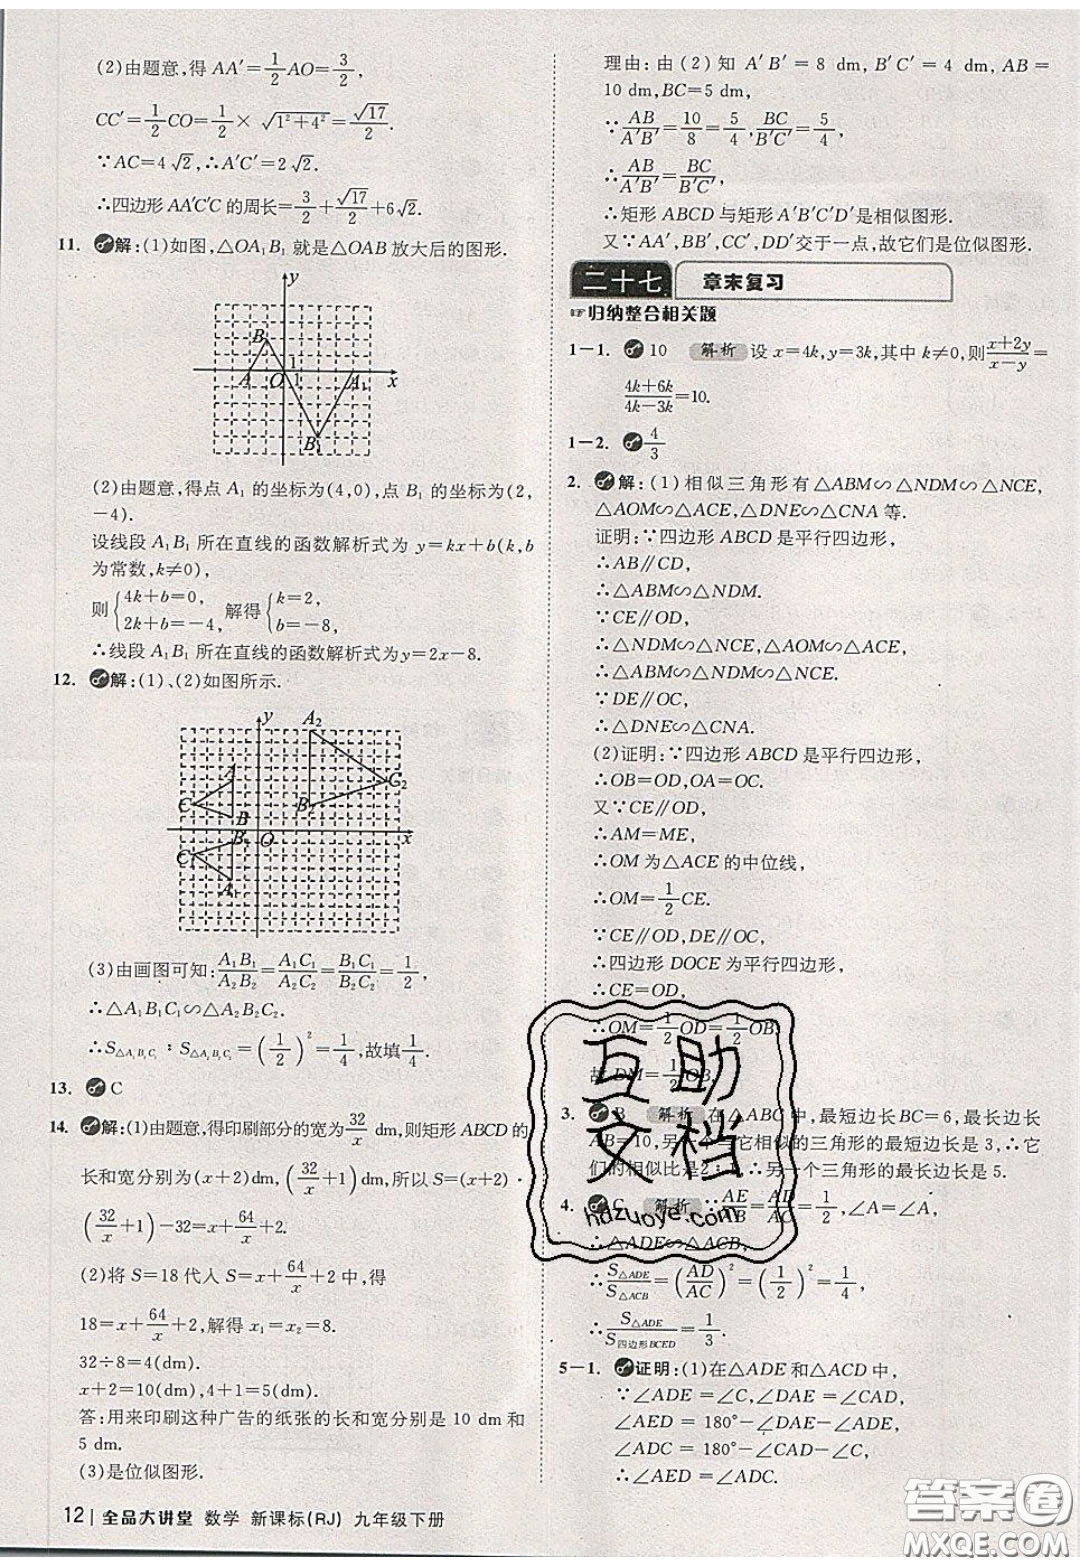 (2)由题意,得 AA′=1/2 AO=3/2,
CC′=1/2 CO=1/2×√(1²+4²)=√17/2.
∵AC=4√2,∴A′C′=2√2.
∴四边形 AA′C′C 的周长=3/2+√17/2+6√2.
11. 解:(1)如图,△OA₁B₁ 就是△OAB 放大后的图形.
y
B
1
A O 1 A₁ x
B₁
(2)由题意,得点 A₁ 的坐标为(4,0),点 B₁ 的坐标为(2,
-4).
设线段 A₁B₁ 所在直线的函数解析式为 y=kx+b(k,b
为常数,k≠0),
则{4k+b=0, 2k+b=-4, 解得{k=2, b=-8,
∴线段 A₁B₁ 所在直线的函数解析式为y=2x-8.
12. 解:(1)、(2)如图所示.
y A₂
A C₂
C B B₂
B₁ O x
C₁
A₁
(3)由画图可知:A₁B₁/A₂B₂=A₁C₁/A₂C₂=B₁C₁/B₂C₂=1/2,
∴△A₁B₁C₁∽△A₂B₂C₂.
∴S△A₁B₁C₁∶S△A₂B₂C₂=(1/2)²=1/4,故填1/4.
13. C
14. 解:(1)由题意,得印刷部分的宽为32/x dm,则矩形 ABCD 的
长和宽分别为(x+2)dm,(32/x+1)dm,所以 S=(x+2)·
(32/x+1)-32=x+64/x+2.
(2)将 S=18 代入 S=x+64/x+2 中,得
18=x+64/x+2,解得 x₁=x₂=8.
32÷8=4(dm).
x+2=10(dm),4+1=5(dm).
答:用来印刷这种广告的纸张的长和宽分别是 10 dm 和
5 dm.
(3)是位似图形.
12 全品大讲堂 数学 新课标(RJ) 九年级下册
理由:由(2)知 A′B′=8 dm,B′C′=4 dm,AB=
10 dm,BC=5 dm,
∵AB/A′B′=10/8=5/4,BC/B′C′=5/4,
∴AB/A′B′=BC/B′C′,
∴矩形 ABCD 与矩形 A′B′C′D′是相似图形.
又∵AA′,BB′,CC′,DD′交于一点,故它们是位似图形.
二十七 章末复习
☞归纳整合相关题
1-1. 10 解析 设 x=4k,y=3k,其中 k≠0,则(x+2y)/(x-y)=
(4k+6k)/(4k-3k)=10.
1-2. 4/3
2. 解:(1)相似三角形有△ABM∽△NDM∽△NCE,
△AOM∽△ACE,△DNE∽△CNA 等.
证明:∵四边形 ABCD 是平行四边形,
∴AB∥CD,
∴△ABM∽△NDM.
∵CE∥OD,
∴△NDM∽△NCE,△AOM∽△ACE,
∴△ABM∽△NDM∽△NCE.
∵DE∥OC,
∴△DNE∽△CNA.
(2)证明:∵四边形 ABCD 是平行四边形,
∴OB=OD,OA=OC.
又∵CE∥OD,
∴AM=ME,
∴OM 为△ACE 的中位线,
∴OM=1/2 CE.
∵CE∥OD,DE∥OC,
∴四边形 DOCE 为平行四边形,
∴CE=OD,
∴OM=1/2 OD=1/2 OB,
故 DM=1/2 OB.
3. B 解析 在△ABC 中,最短边长BC=6,最长边长
AB=10,另一个与它相似的三角形的最短边长是 3,∴它
们的相似比是2∶1,∴另一个三角形的最长边长是 5.
4. C 解析 ∵AE/AB=AD/AC=1/2,∠A=∠A,
∴△ADE∽△ACB,
∴S△ADE/S△ACB=(AD/AC)²=(1/2)²=1/4,
∴S△ADE/S四边形BCED=1/3.
5-1. 证明:(1)在△ADE 和△ACD 中,
∵∠ADE=∠C,∠DAE=∠CAD,
∠AED=180°-∠DAE-∠ADE,
∠ADC=180°-∠CAD-∠C,
∴∠AED=∠ADC.
互助
文档
hdzuoye.com
答案圈
MXQE.COM